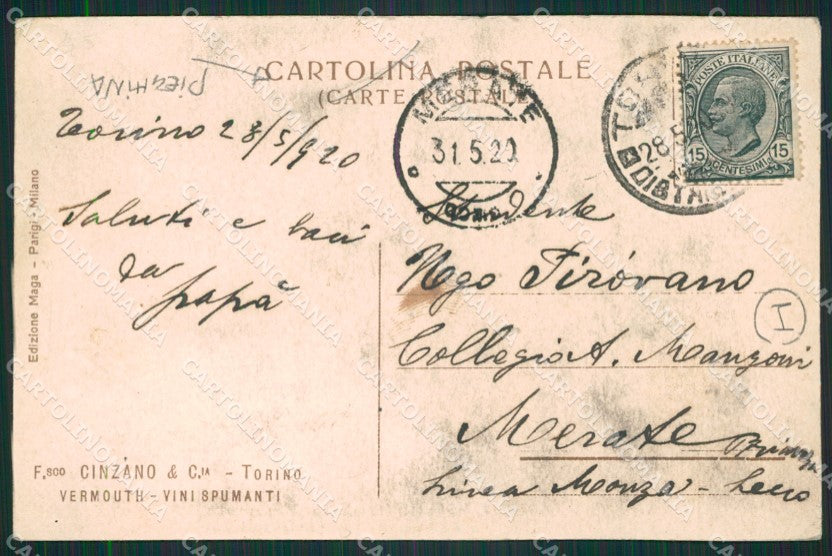 PIEGHINA
CARTOLINA POSTALE
(CARTE POSTALE)
Torino 28/5/920
Saluti e baci
da
papà
MERATE
31.5.20
COMO
TORINO
28.5
DISTRIB
POSTE ITALIANE
15 15
CENTESIMI
Studente
Ugo Pirovano
Collegio A. Manzoni
Merate Brianza
Linea Monza - Lecco
I
Edizione Maga - Parigi - Milano
F.SCO CINZANO & C.IA - TORINO
VERMOUTH - VINI SPUMANTI
CARTOLINOMANIA